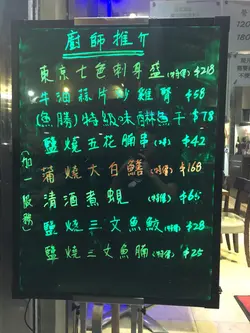 廚師推介
東京七色刺身盛(時價) $218
牛油蒜片炒雞腎 $58
(魚勝)特級味醂魚干 $78
鹽燒五花腩串(2串) $42
蒲燒大白鱔(時價) $168
清酒煮蜆(時價) $65
鹽燒三文魚鮫(時價) $28
鹽燒三文魚腩(時價) $25
(加一服務)
120
160